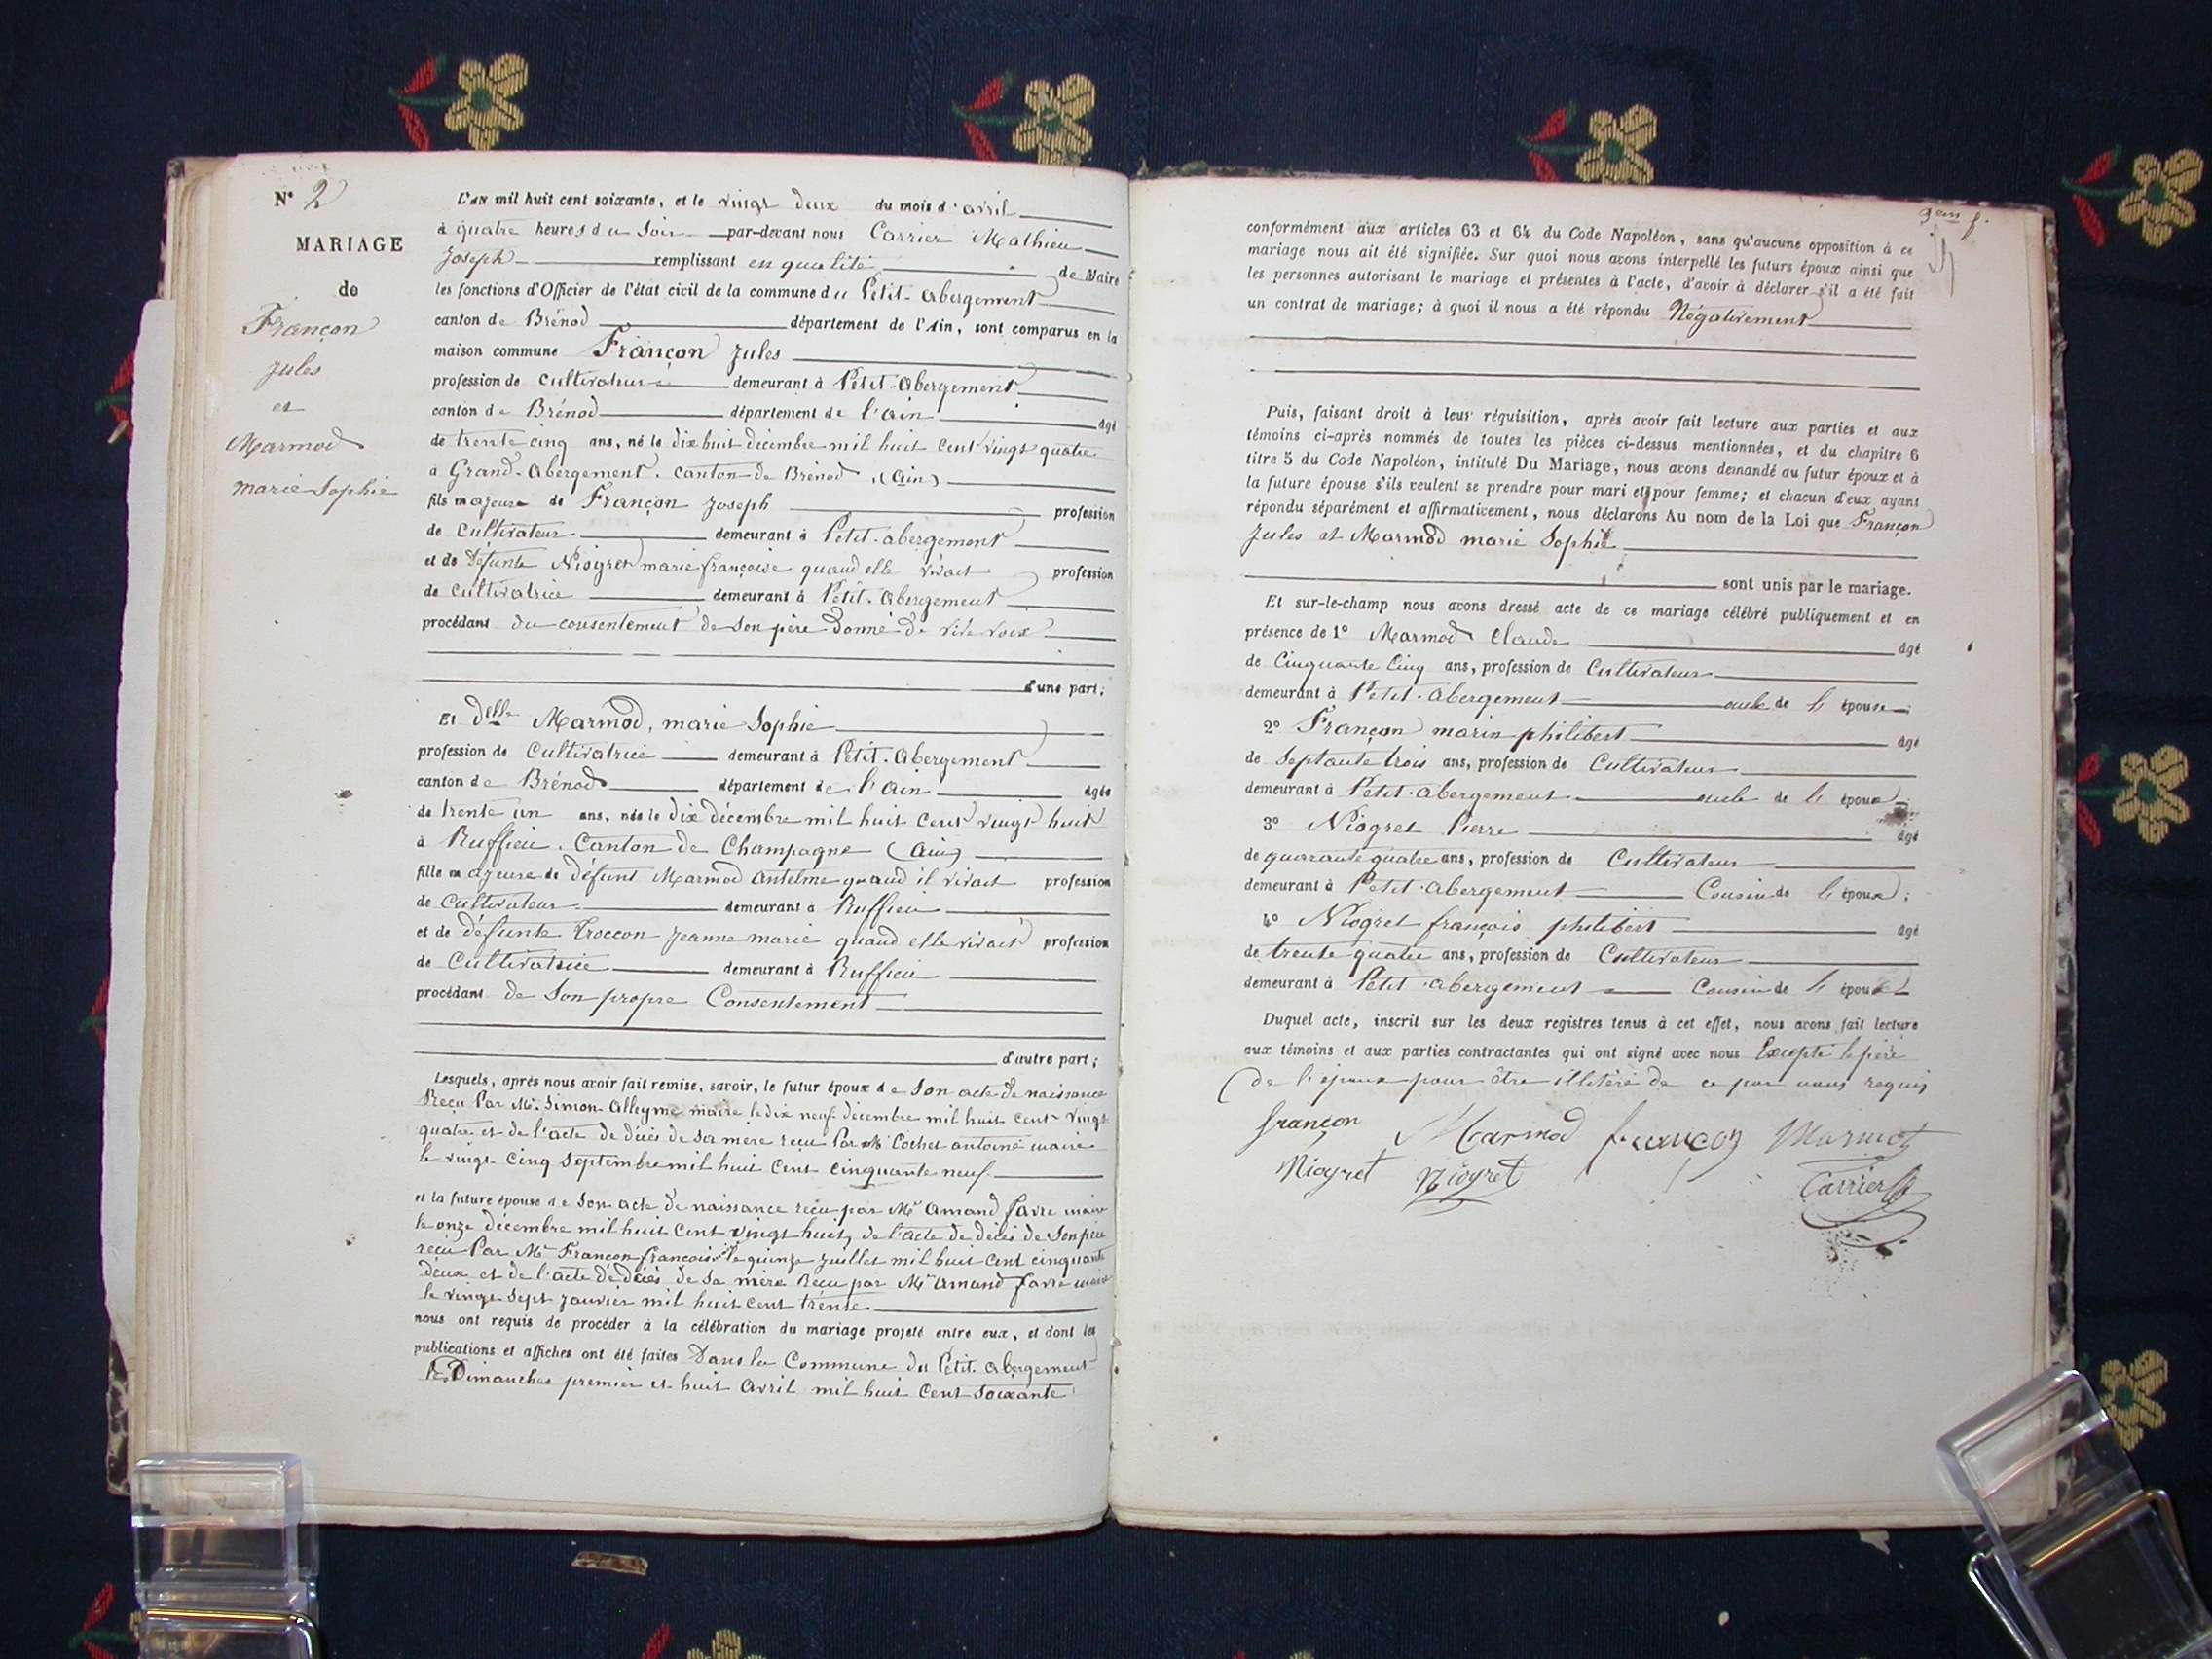 N° 2
MARIAGE
de
Françon
Jules
et
Marmod
marie Sophie
L'an mil huit cent soixante, et le vingt deux du mois d'avril
à quatre heures du soir par-devant nous Carrier Mathieu
Joseph remplissant en qualité de Maire
les fonctions d'Officier de l'état civil de la commune du Petit-abergement
canton de Brénod département de l'Ain, sont comparus en la
maison commune Françon Jules
profession de cultivateur demeurant à Petit-abergement
canton de Brénod département de l'ain âgé
de trente cinq ans, né le dix huit décembre mil huit cent vingt quatre
à Grand-abergement. canton de Brénod (ain)
fils majeur de Françon Joseph profession
de cultivateur demeurant à Petit-abergement
et de Défunte Niogret marie françoise quand elle vivait profession
de cultivatrice demeurant à Petit-abergement
procédant du consentement de son père donné de vive voix
d'une part;
Et delle Marmod, marie Sophie
profession de Cultivatrice demeurant à Petit-abergement
canton de Brénod département de l'ain âgée
de trente un ans, née le dix décembre mil huit cent vingt huit
à Ruffieu. Canton de Champagne (ain)
fille majeure de défunt Marmod antelme quand il vivait profession
de cultivateur demeurant à Ruffieu
et de défunte Troccon Jeanne marie quand elle vivait profession
de Cultivatrice demeurant à Ruffieu
procédant de son propre Consentement
d'autre part;
Lesquels, après nous avoir fait remise, savoir, le futur époux de son acte de naissance
Reçu Par Mr. Simon maire le dix neuf décembre mil huit cent vingt
quatre et de l'acte de décès de sa mère reçu Par Mr Cochet antoine maire
le vingt cinq septembre mil huit cent cinquante neuf
et la future épouse de son acte de naissance reçu par Mr amand favre maire
le onze décembre mil huit cent vingt huit, de l'acte de décès de son père
reçu Par Mr Françon françois le quinze Juillet mil huit cent cinquante
deux et de l'acte de décès de sa mère Reçu par Mr amand favre maire
le vingt sept Janvier mil huit cent trente
nous ont requis de procéder à la célébration du mariage projeté entre eux, et dont les
publications et affiches ont été faites Dans la Commune du Petit-abergement
les Dimanches premier et huit avril mil huit cent soixante
conformément aux articles 63 et 64 du Code Napoléon, sans qu'aucune opposition à ce
mariage nous ait été signifiée. Sur quoi nous avons interpellé les futurs époux ainsi que
les personnes autorisant le mariage et présentes à l'acte, d'avoir à déclarer s'il a été fait
un contrat de mariage; à quoi il nous a été répondu Négativement
Puis, faisant droit à leur réquisition, après avoir fait lecture aux parties et aux
témoins ci-après nommés de toutes les pièces ci-dessus mentionnées, et du chapitre 6
titre 5 du Code Napoléon, intitulé Du Mariage, nous avons demandé au futur époux et à
la future épouse s'ils veulent se prendre pour mari et pour femme; et chacun d'eux ayant
répondu séparément et affirmativement, nous déclarons Au nom de la Loi que Françon
Jules et Marmod marie Sophie
sont unis par le mariage.
Et sur-le-champ nous avons dressé acte de ce mariage célébré publiquement et en
présence de 1° Marmod Claude âgé
de Cinquante Cinq ans, profession de Cultivateur
demeurant à Petit-abergement oncle de l'épouse
2° Françon marin philibert âgé
de septante trois ans, profession de Cultivateur
demeurant à Petit-abergement oncle de l'époux
3° Niogret Pierre âgé
de quarante quatre ans, profession de Cultivateur
demeurant à Petit-abergement Cousin de l'époux;
4° Niogret françois philibert âgé
de trente quatre ans, profession de Cultivateur
demeurant à Petit-abergement Cousin de l'époux
Duquel acte, inscrit sur les deux registres tenus à cet effet, nous avons fait lecture
aux témoins et aux parties contractantes qui ont signé avec nous Excepté le père
de l'époux pour être illitéré de ce par nous requis
françon Marmod françon Marmod
Niogret Niogret Carrier